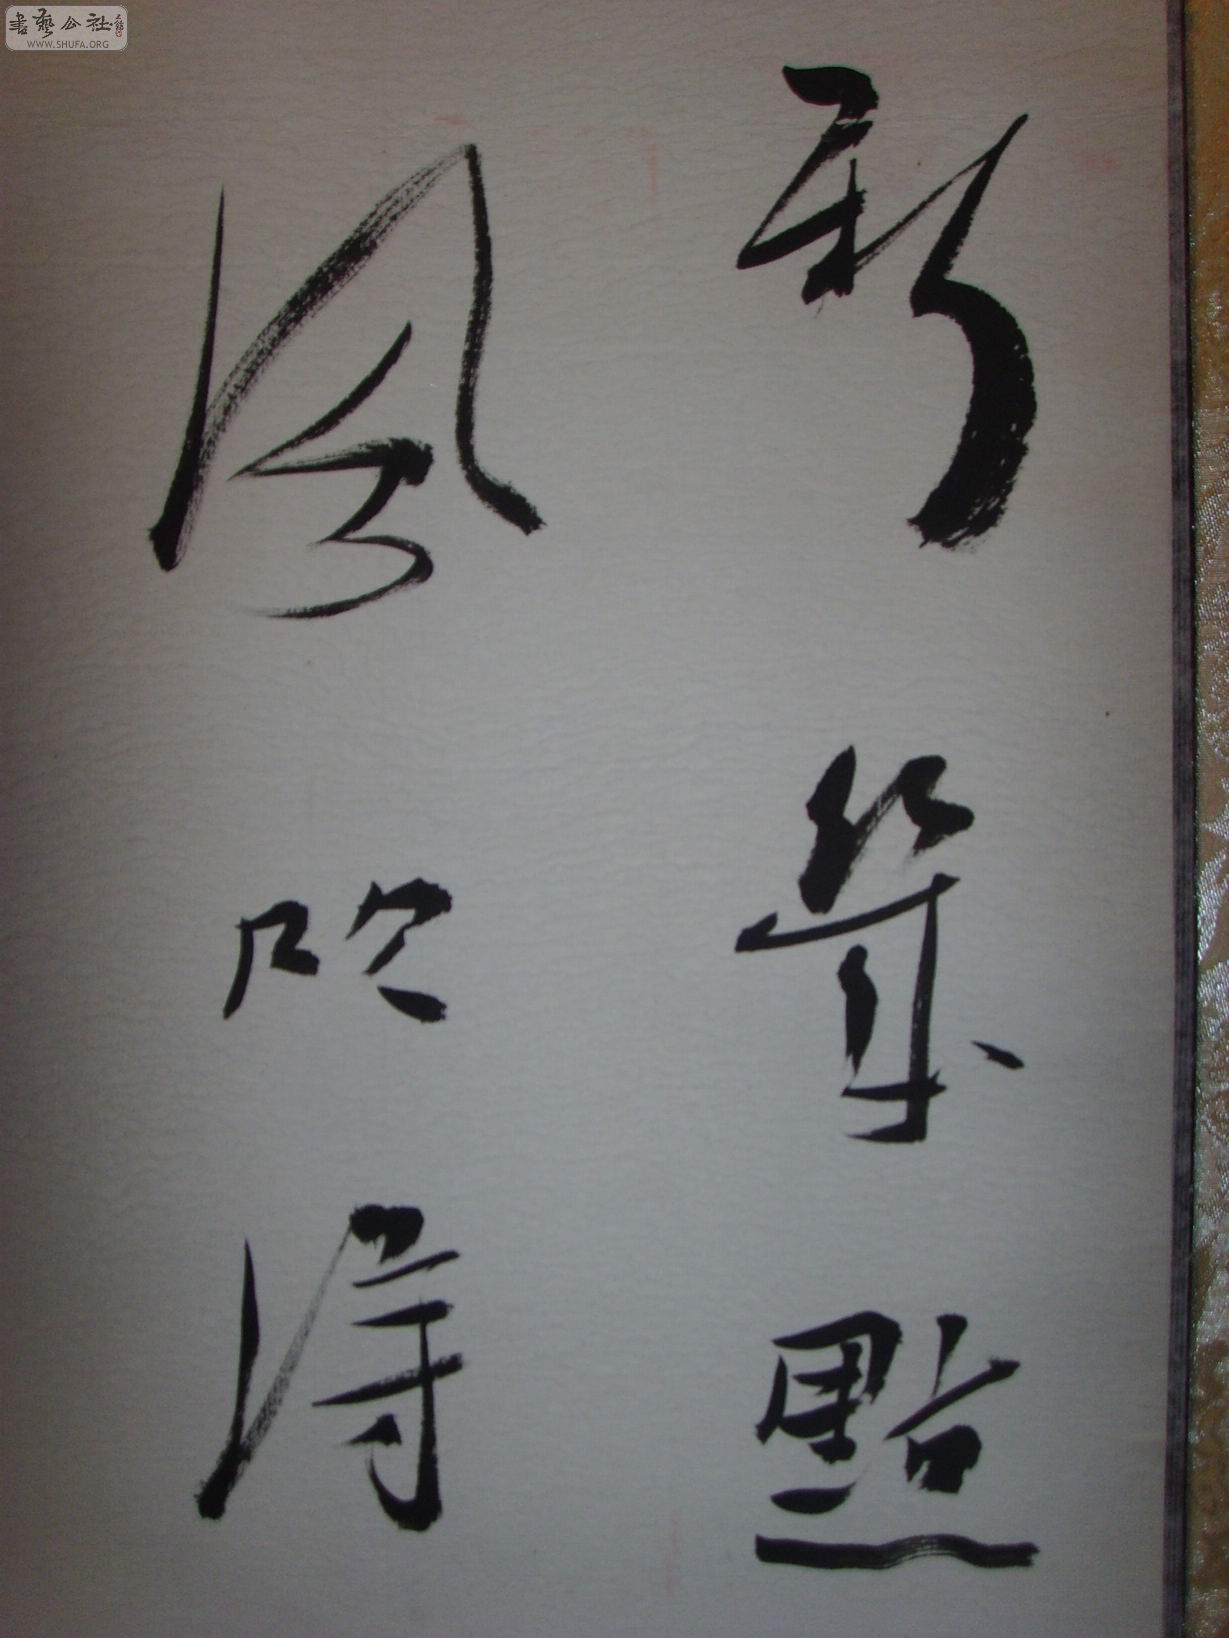 書藝公社
WWW.SHUFA.ORG
新幾點
風吹得